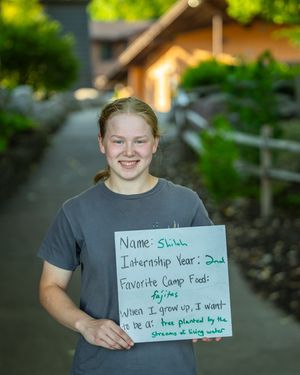 Name: Shiloh
Internship Year: 2nd
Favorite Camp Food:
fajitas
When I grow up, I want
to be a: tree planted by the
streams of living water